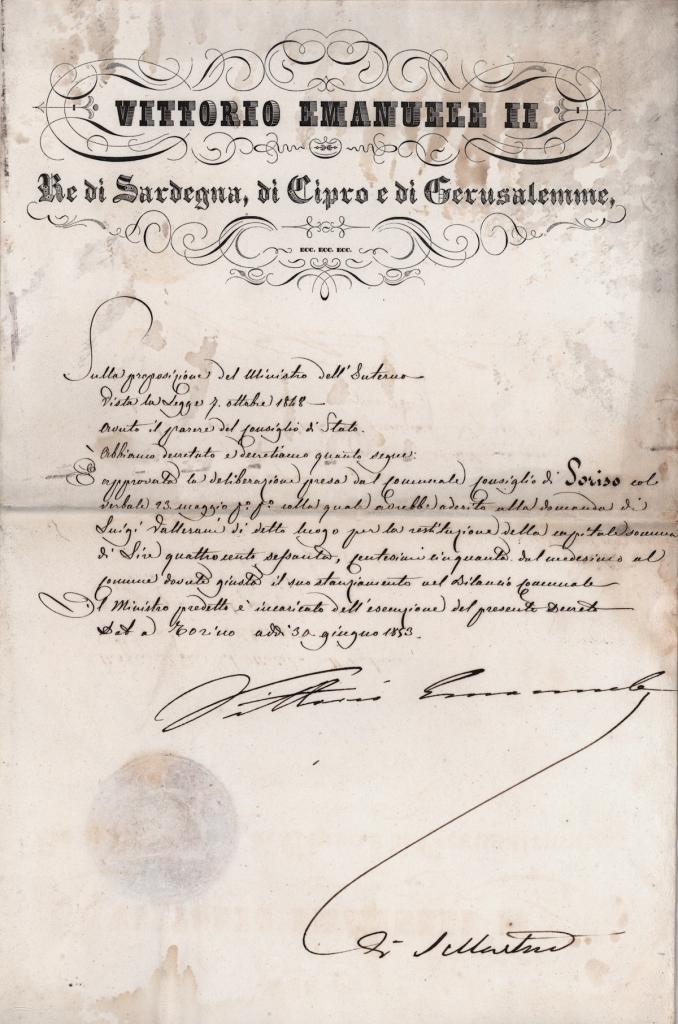 VITTORIO EMANUELE II
Re di Sardegna, di Cipro e di Gerusalemme,
ECC. ECC. ECC.
Sulla proposizione del Ministro dell'Interno
Vista la Legge 7. ottobre 1848
Avuto il parere del Consiglio di Stato.
Abbiamo decretato e decretiamo quanto segue:
È approvata la deliberazione presa dal Comunale Consiglio di Soriso col
verbale 23 maggio p.° p.° colla quale avrebbe aderito alla domanda di
Luigi Valterani di detto luogo per la restituzione della capitale somma
di Lire quattrocento sessanta, centesimi cinquanta dal medesimo al
Comune dovuta giusta il suo stanziamento nel Bilancio Comunale
Il Ministro predetto è incaricato dell'esecuzione del presente Decreto
Dat a Torino addì 30 giugno 1853.
Vittorio Emanuele
Di S Martino